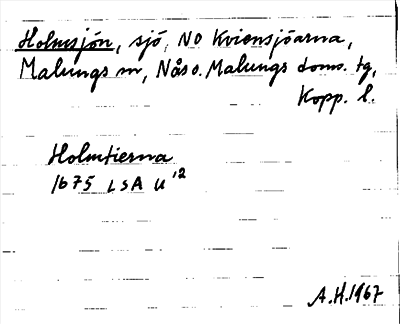 Holmsjön, sjö, NO Kviensjöarna,
Malungs sn, Nås o. Malungs doms. tg,
Kopp. l.
Holmtierna
1675 LSA U 12
A.H. 1967